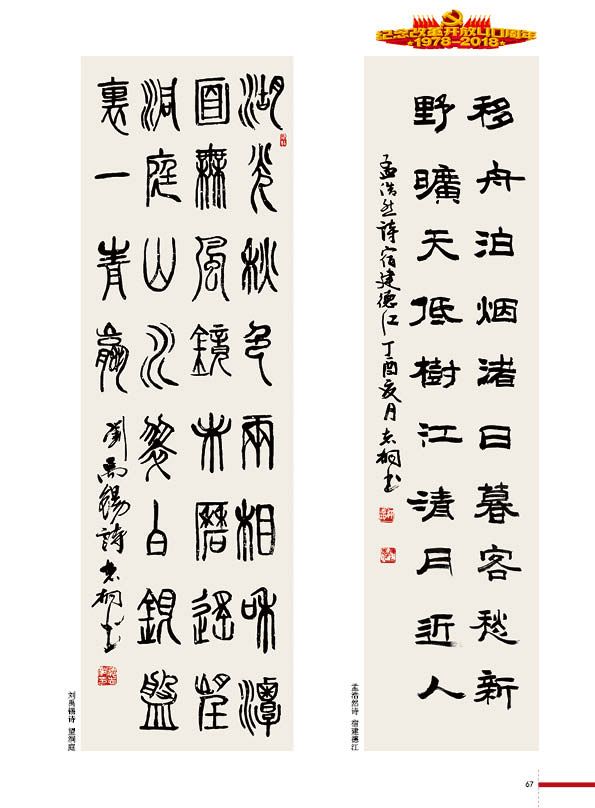 纪念改革开放40周年
1978-2018
移舟泊烟渚日暮客愁新
野曠天低樹江清月近人
孟浩然詩宿建德江丁酉 月 桐书
孟浩然诗 宿建德江
湖光秋色兩相和潭
面無風鏡未磨遙望
洞庭山水翠白銀盤
裏一青螺
劉禹锡詩 桐书
刘禹锡诗 望洞庭
67